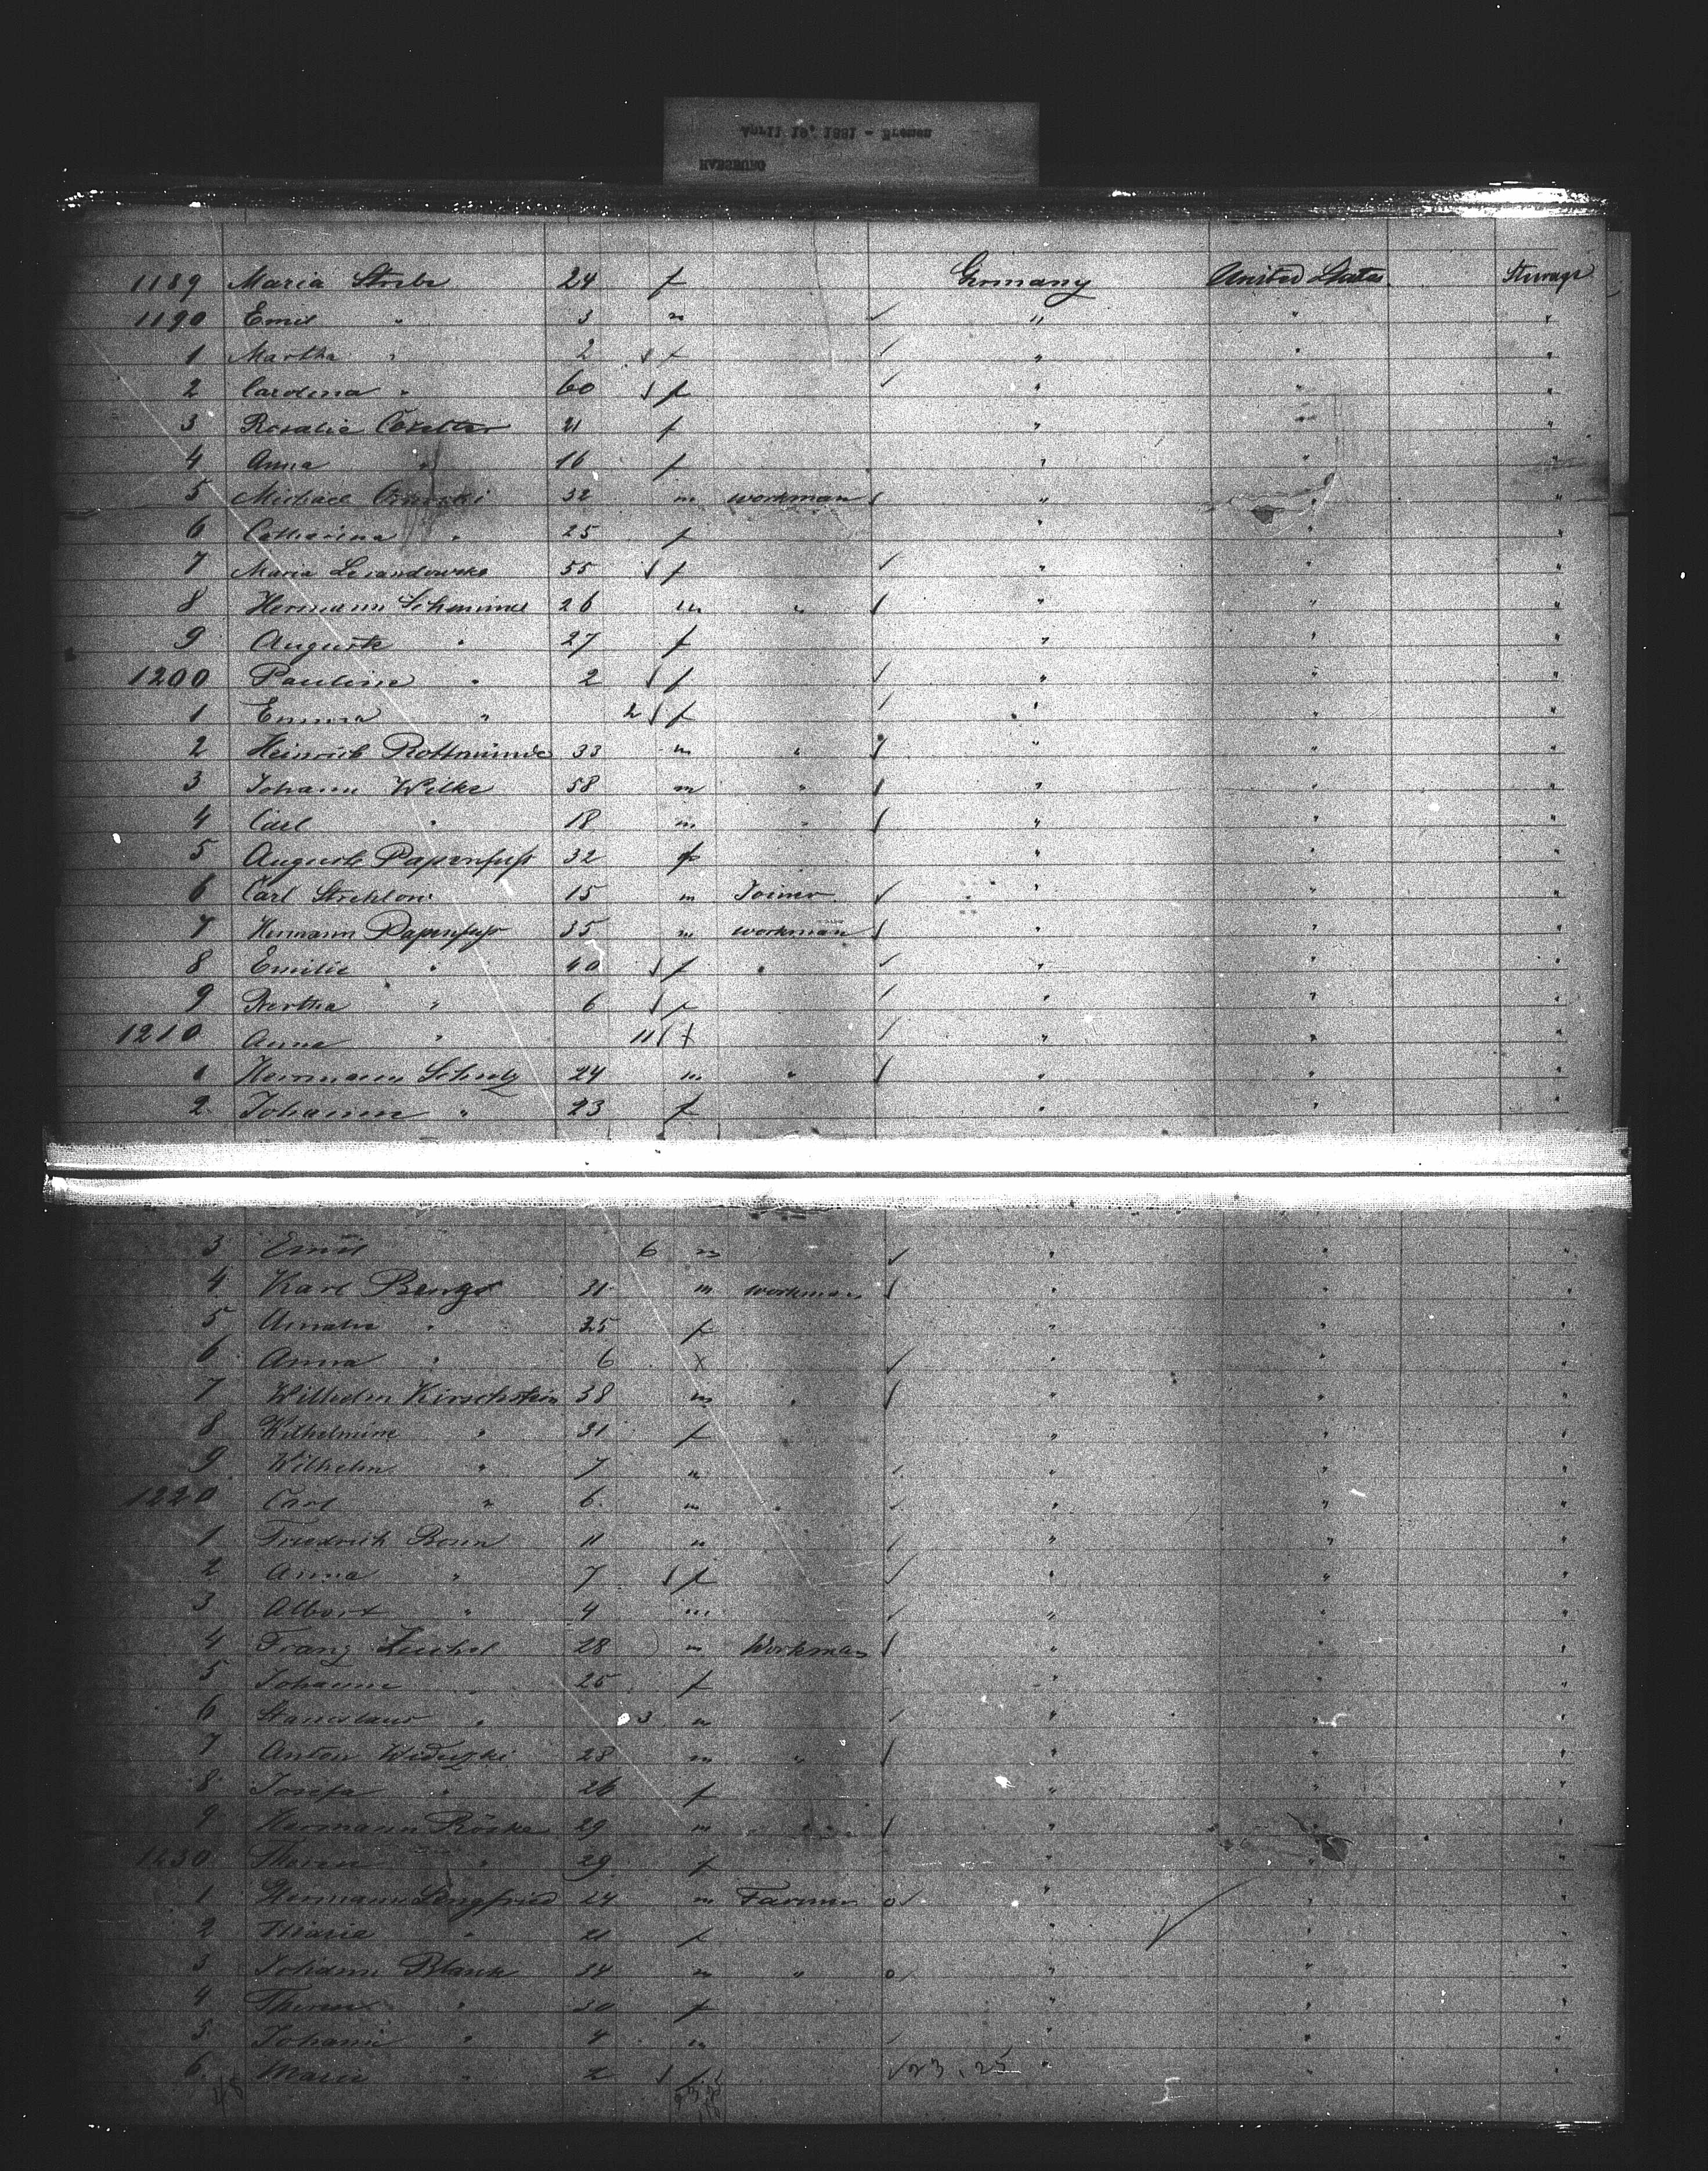 HABSBURG
April 19, 1881 - Bremen
1189 Maria 24 f Germany United States Steerage
1190 Emil " 3 m " " "
1 Martha " 2 f " " "
2 Carolina " 60 f " " "
3 Rosalie 21 f " " "
4 Anna " 16 f " " "
5 Michael 32 m workman " " "
6 Catharina " 25 f " " "
7 Maria 55 f " " "
8 Hermann 26 m " " " "
9 Auguste " 27 f " " "
1200 Pauline " 2 f " " "
1 Emma " 2 f " " "
2 Heinrich 33 m " " " "
3 Johann Wilke 58 m " " " "
4 Carl " 18 m " " " "
5 Auguste Papenfuß 32 f " " "
6 Carl Strehlow 15 m Joiner " " "
7 Hermann Papenfuß 35 m workman " " "
8 Emilie " 40 f " " "
9 Bertha " 6 f " " "
1210 Anna " 11 f " " "
1 Hermann Schulz 24 m " " " "
2 Johann " 23 f " " "
3 Emil 6 m " " "
4 Karl 31 m workman " " "
5 " 35 f " " "
6 Anna " 6 f " " "
7 Wilhelm Kirschstein 38 m " " " "
8 Wilhelmine " 31 f " " "
9 Wilhelm " 7 m " " "
1220 Carl " 6 m " " "
1 Friedrich Born 11 m " " "
2 Anna " 7 f " " "
3 Albert " 4 m " " "
4 Franz 28 m Workman " " "
5 Johanne " 25 f " " "
6 Stanislaus " 3 m " " "
7 Anton 28 m " " " "
8 Josefa " 26 f " " "
9 Hermann Röske 29 m " " " "
1230 " 29 f " " "
1 Hermann 24 m Farmer " " "
2 Marie " 21 f " " "
3 Johann Blank 34 m " " " "
4 " 30 f " " "
5 Johann " 4 m " " "
6 Marie " 2 f 23, 25 " " "